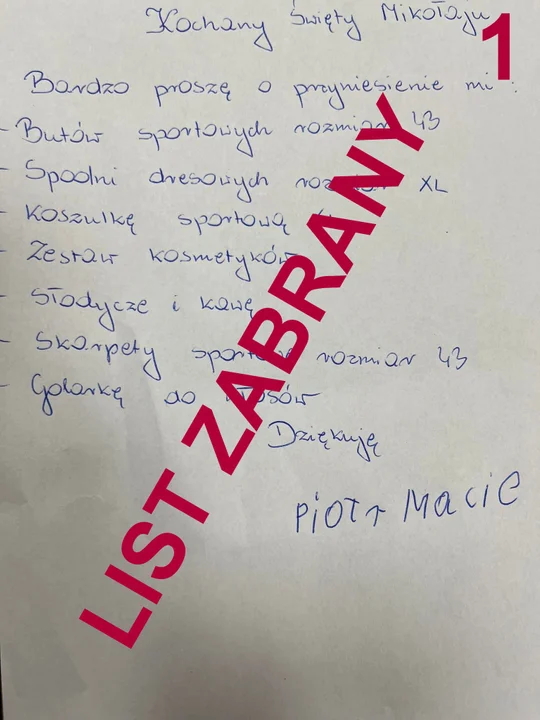 Kochany Święty Mikołaju
1
Bardzo proszę o przyniesienie mi :
- Butów sportowych rozmiar 43
- Spodni dresowych rozmiar XL
- Koszulkę sportową
- Zestaw kosmetyków
- Słodycze i kawę
- Skarpety sportowe rozmiar 43
- Golarkę do włosów
Dziękuję
Piotr Macie
LIST ZABRANY